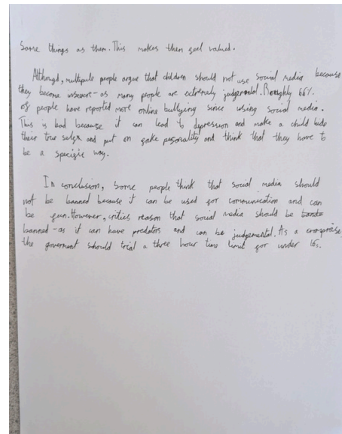 Same things as them. This makes them feel valued.
Although, multiple people argue that children should not use social media because
they become unaware - as many people are extremely judgmental. Roughly 66%
of people have reported more online bullying since using social media.
This is bad because it can lead to depression and make a child hide
there true selfs and put on fake personality and think that they have to
be a specific way.
In conclusion, some people think that social media should
not be banned because it can be used for communication and can
be fun. However, critics reason that social media should be
banned - as it can have predators and can be judgemental. As a compromise
the goverment should trial a three hour time limit for under 16s.